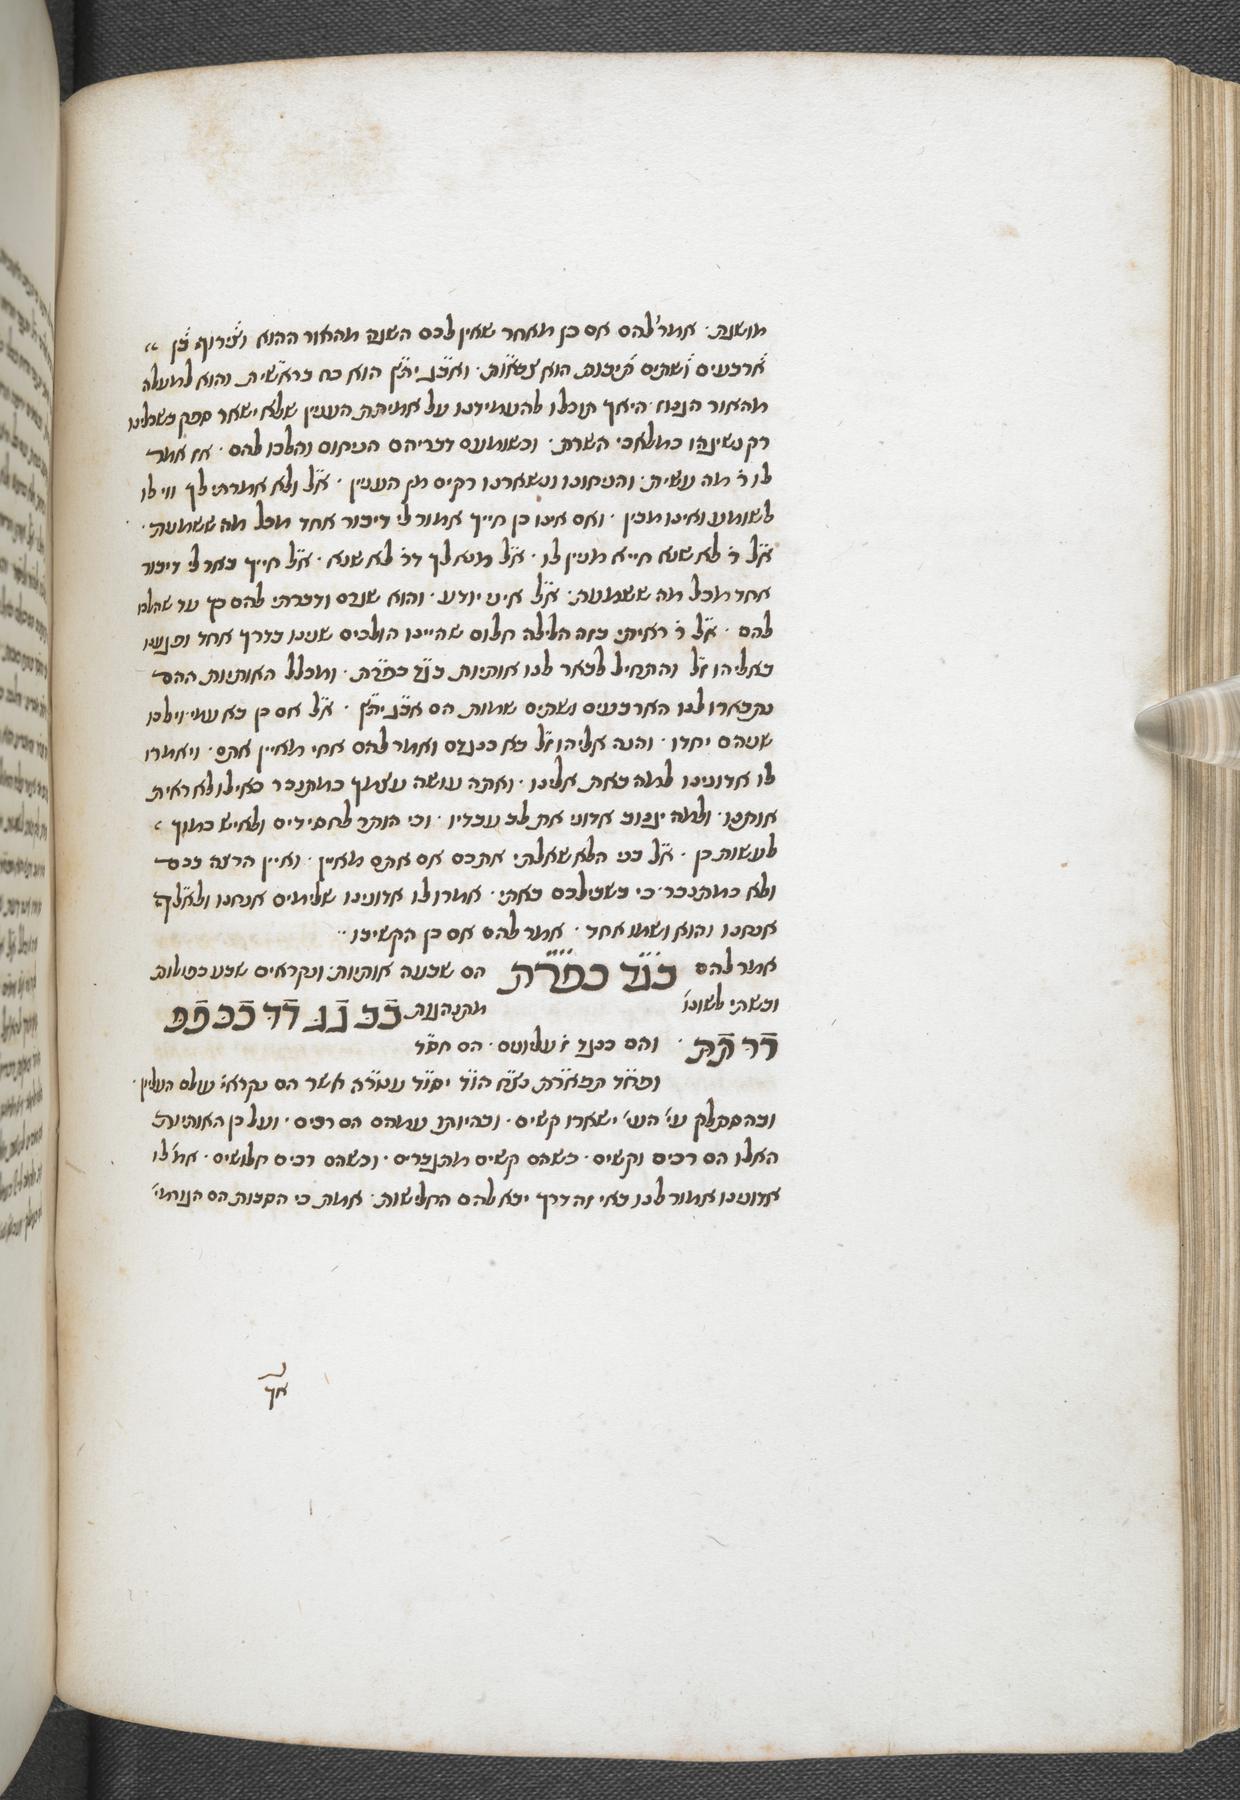 מושגת · אמר להם אם כן מאחר שאין לכם השגה מהאור ההוא וצירוף בן
ארבעים ושתים תיבות הוא צבאות · ואב״ג ית״ץ הוא כח בראשית והוא למעלה
מהאור הנכוח היאך תוכלו להעמידנו על אמיתת העניין שלא ישאר ספק בשכלינו
רק נשיגהו כמלאכי השרת · וכשומעם דבריהם הניחום והלכו להם · אז אמר
לו ר׳ מה עשית · והניחונו ונשארנו רקים מן העניין · א״ל ולא אמרתי לך ווי לו
לשומע ואינו מבין · ואם אינו כן חייך אמור לי דיבור אחד מכל מה ששמעת ·
א״ל ר׳ לא שנא חייא מניין לו · א״ל מנא לך דר׳ לא שנא · א״ל חייך באר לי דיבור
אחד מכל מה ששמעת · א״ל איני יודע · והוא שגדם ודברתי להם כך עד שהלכו
להם · א״ל ר׳ ראיתי בזה הלילה חלום שהיינו הולכים שנינו בדרך אחד ופגענו
באליהו ז״ל והתחיל לבאר לנו אותיות בג״ד כפר״ת · ומכלל האותיות ההם
נתבארו לנו הארבעים ושתים שמות הם אב״ג ית״ץ · א״ל אם כן בא עמי וילכו
שניהם יחדו · והנה אליהו ז״ל בא כנגדם ואמר להם אחי מאיין אתם · ויאמרו
לו אדונינו למה באת אלינו · ואתה עושה עצמך כמתנכר כאילו לא ראית
אותנו · ולמה יגנוב אדוני את לב עבדיו · וכי הותר לחסידים ולאיש כמוך
לעשות כן · א״ל בני הלא שאלתי אתכם אם אתם מאיין · ואיין הרצה בכם
ולא כמתנכר כי בשבילכם באתי · אמרו לו אדונינו שלימים אנחנו ולאלף
אנחנו והוא ושמו אחד · אמר להם אם כן הקשיבו ··
אמר להם בג״ד כפר״ת הם שבעה אותיות · ונקראים שבע כפולות
ובשתי לשונו׳ מתנהגות בב גג דד ככ פפ
רר תת · והם כנגד ז׳ עליונים · הם חס״ד
ופח״ד תפאר״ת נצ״ח הו״ד יסו״ד עטר״ה אשר הם נקראי׳ עולם העליון ·
ובהסתלק עי׳ העי׳ ישארו קשים · ובהיותו עמהם הם רכים · ועל כן האותיות
האלו הם רכים וקשים · כשהם קשים מתגברים · וכשהם רכים חלושים · אמ׳ לו
אדונינו אמור לנו באי זה דרך יבא להם החלישות · אמת כי הסבות הם הנותני׳
אך